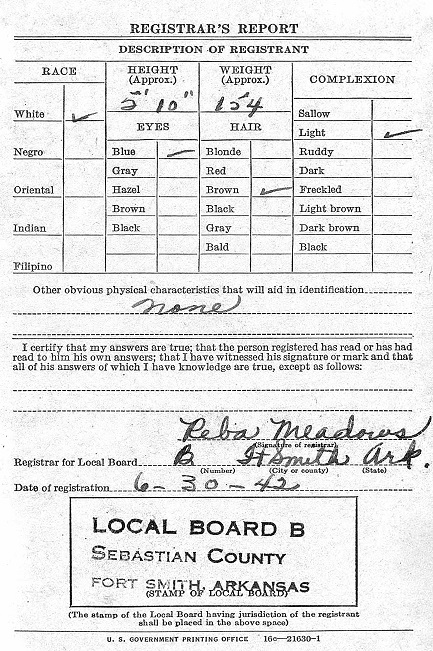 REGISTRAR'S REPORT
DESCRIPTION OF REGISTRANT
RACE
HEIGHT (Approx.)
WEIGHT (Approx.)
COMPLEXION
5' 10"
154
White ✓
Negro
Oriental
Indian
Filipino
EYES
Blue ✓
Gray
Hazel
Brown
Black
HAIR
Blonde
Red
Brown ✓
Black
Gray
Bald
Sallow
Light ✓
Ruddy
Dark
Freckled
Light brown
Dark brown
Black
Other obvious physical characteristics that will aid in identification
none
I certify that my answers are true; that the person registered has read or has had
read to him his own answers; that I have witnessed his signature or mark and that
all of his answers of which I have knowledge are true, except as follows:
Reba Meadows
(Signature of registrar)
Registrar for Local Board B Ft Smith Ark.
(Number) (City or county) (State)
Date of registration 6-30-42
LOCAL BOARD B
SEBASTIAN COUNTY
FORT SMITH, ARKANSAS
(STAMP OF LOCAL BOARD)
(The stamp of the Local Board having jurisdiction of the registrant
shall be placed in the above space)
U. S. GOVERNMENT PRINTING OFFICE 16c—21630-1